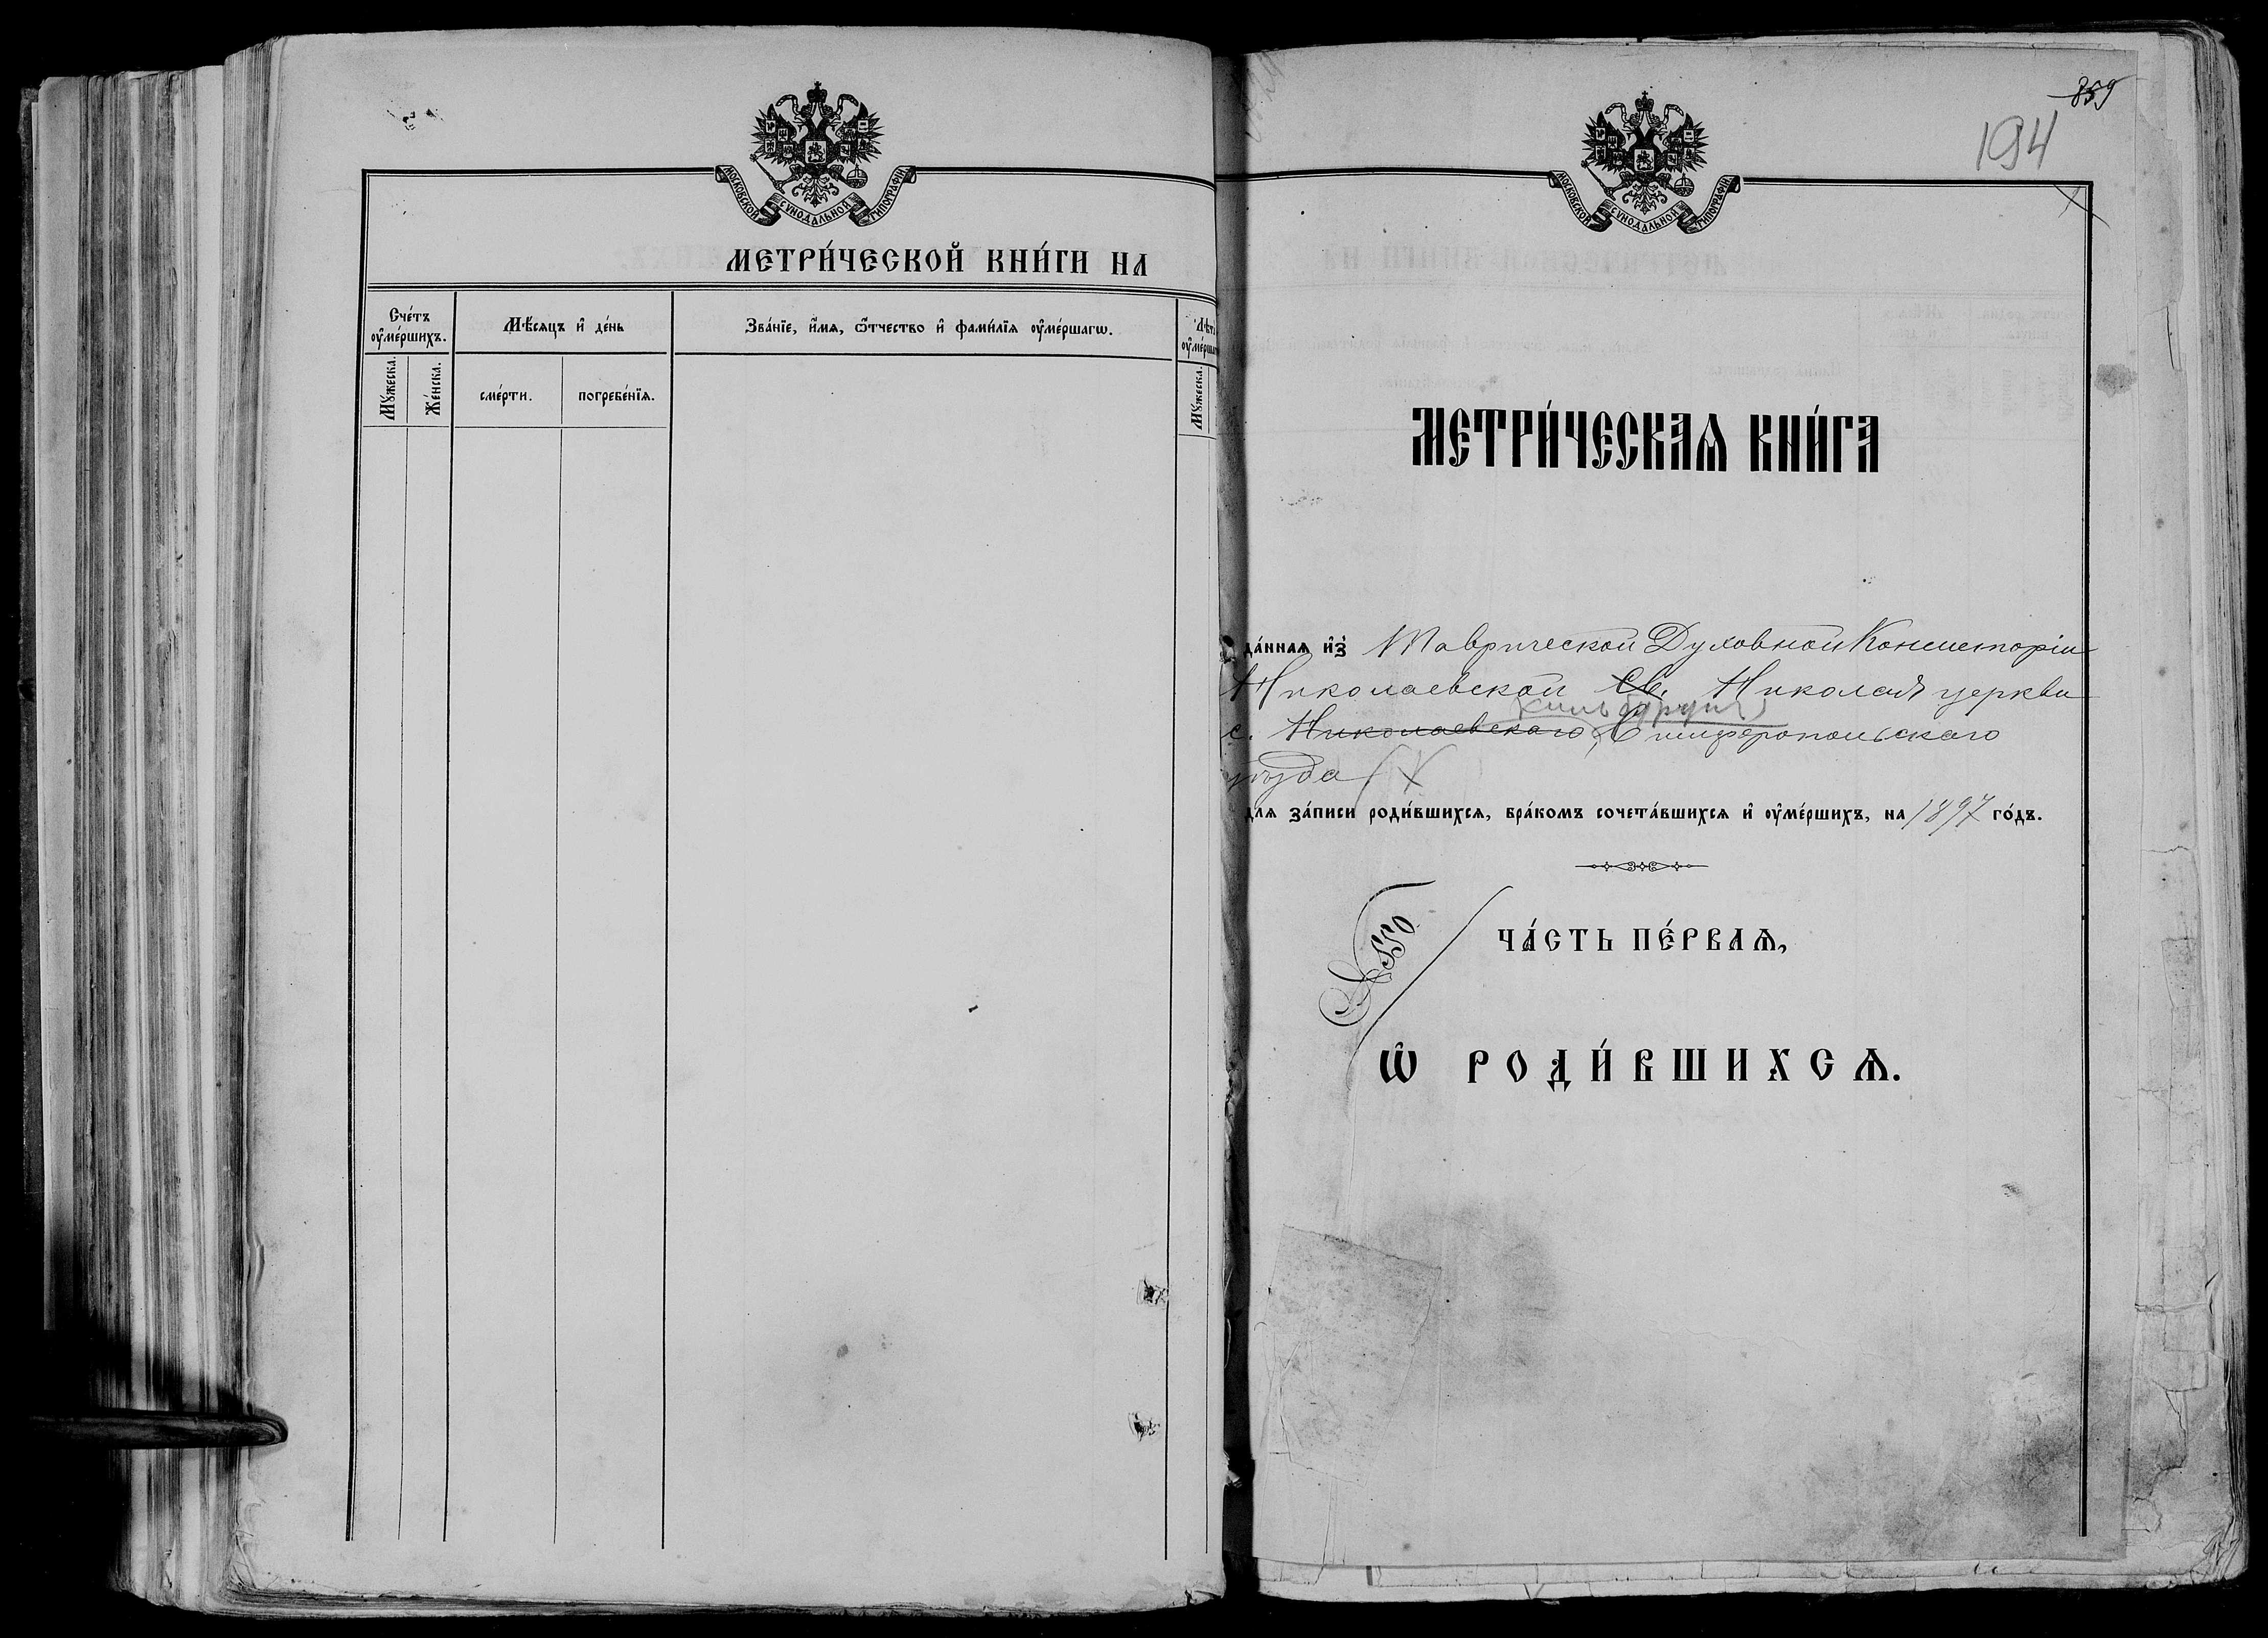 МОСКОВСКОЙ СѴНОДАЛЬНОЙ ТИПОГРАФІИ
МЕТРИ́ЧЕСКОЙ КНИ́ГИ НА
Сче́тъ оу҆ме́ршихъ.
Мѣ́сяцъ и҆ де́нь
Зва́нїе, и҆́мя, ѻ҆́тчество и҆ фами́лїя оу҆ме́ршагѡ.
Лѣт
оу҆ме́рша
Мꙋ́жеска.
Же́нска.
сме́рти.
погребе́нїя.
Мꙋ́жеска.
859
194
МОСКОВСКОЙ СѴНОДАЛЬНОЙ ТИПОГРАФІИ
МЕТРИ́ЧЕСКАѦ КНИ́ГА
да́ннаѧ и҆з̾ Таврической Духовной Консисторіи
Николаевской Св. Николая церкви
с. Николаевскаго, Симферопольскаго
уѣзда
для за́писи роди́вшихсѧ, бра́комъ сочета́вшихсѧ и҆ оу҆ме́ршихъ, на 1897 го́дъ.
№ 550.
ЧА́СТЬ ПЕ́РВАѦ,
Ѽ РОДИ́ВШИХСѦ.